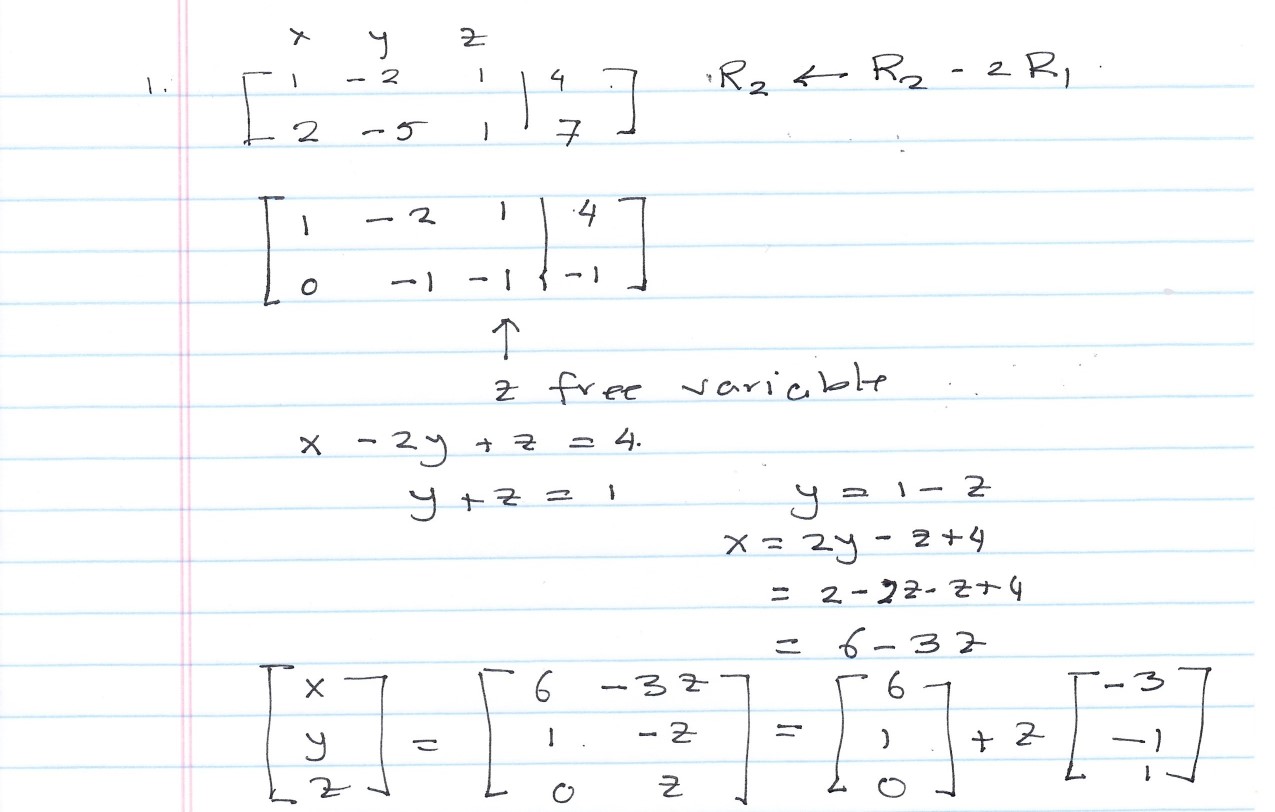 x y z
1. [ 1 -2 1 | 4 ] R₂ ← R₂ - 2 R₁
[ 2 -5 1 | 7 ]
[ 1 -2 1 | 4 ]
[ 0 -1 -1 | -1 ]
↑
z free variable
x - 2y + z = 4.
y + z = 1 y = 1 - z
x = 2y - z + 4
= 2 - 2z - z + 4
= 6 - 3z
[ x ] [ 6 -3z ] [ 6 ] [ -3 ]
[ y ] = [ 1 -z ] = [ 1 ] + z [ -1 ]
[ z ] [ 0 z ] [ 0 ] [ 1 ]